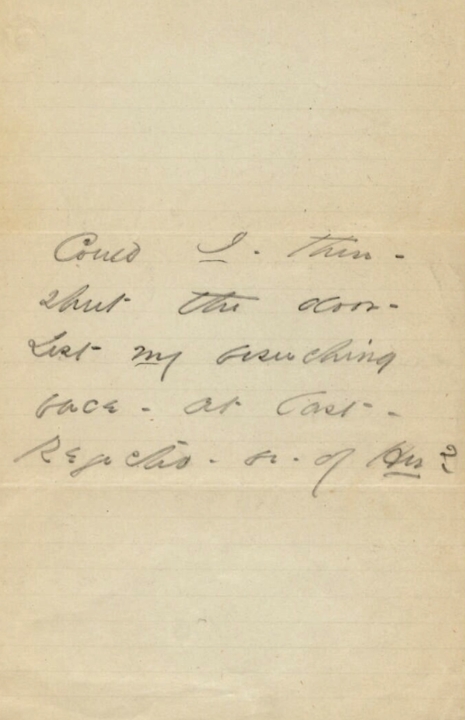 Could I - then -
shut the door -
Lest my beseeching
face - at last -
Rejected - be - of Her?